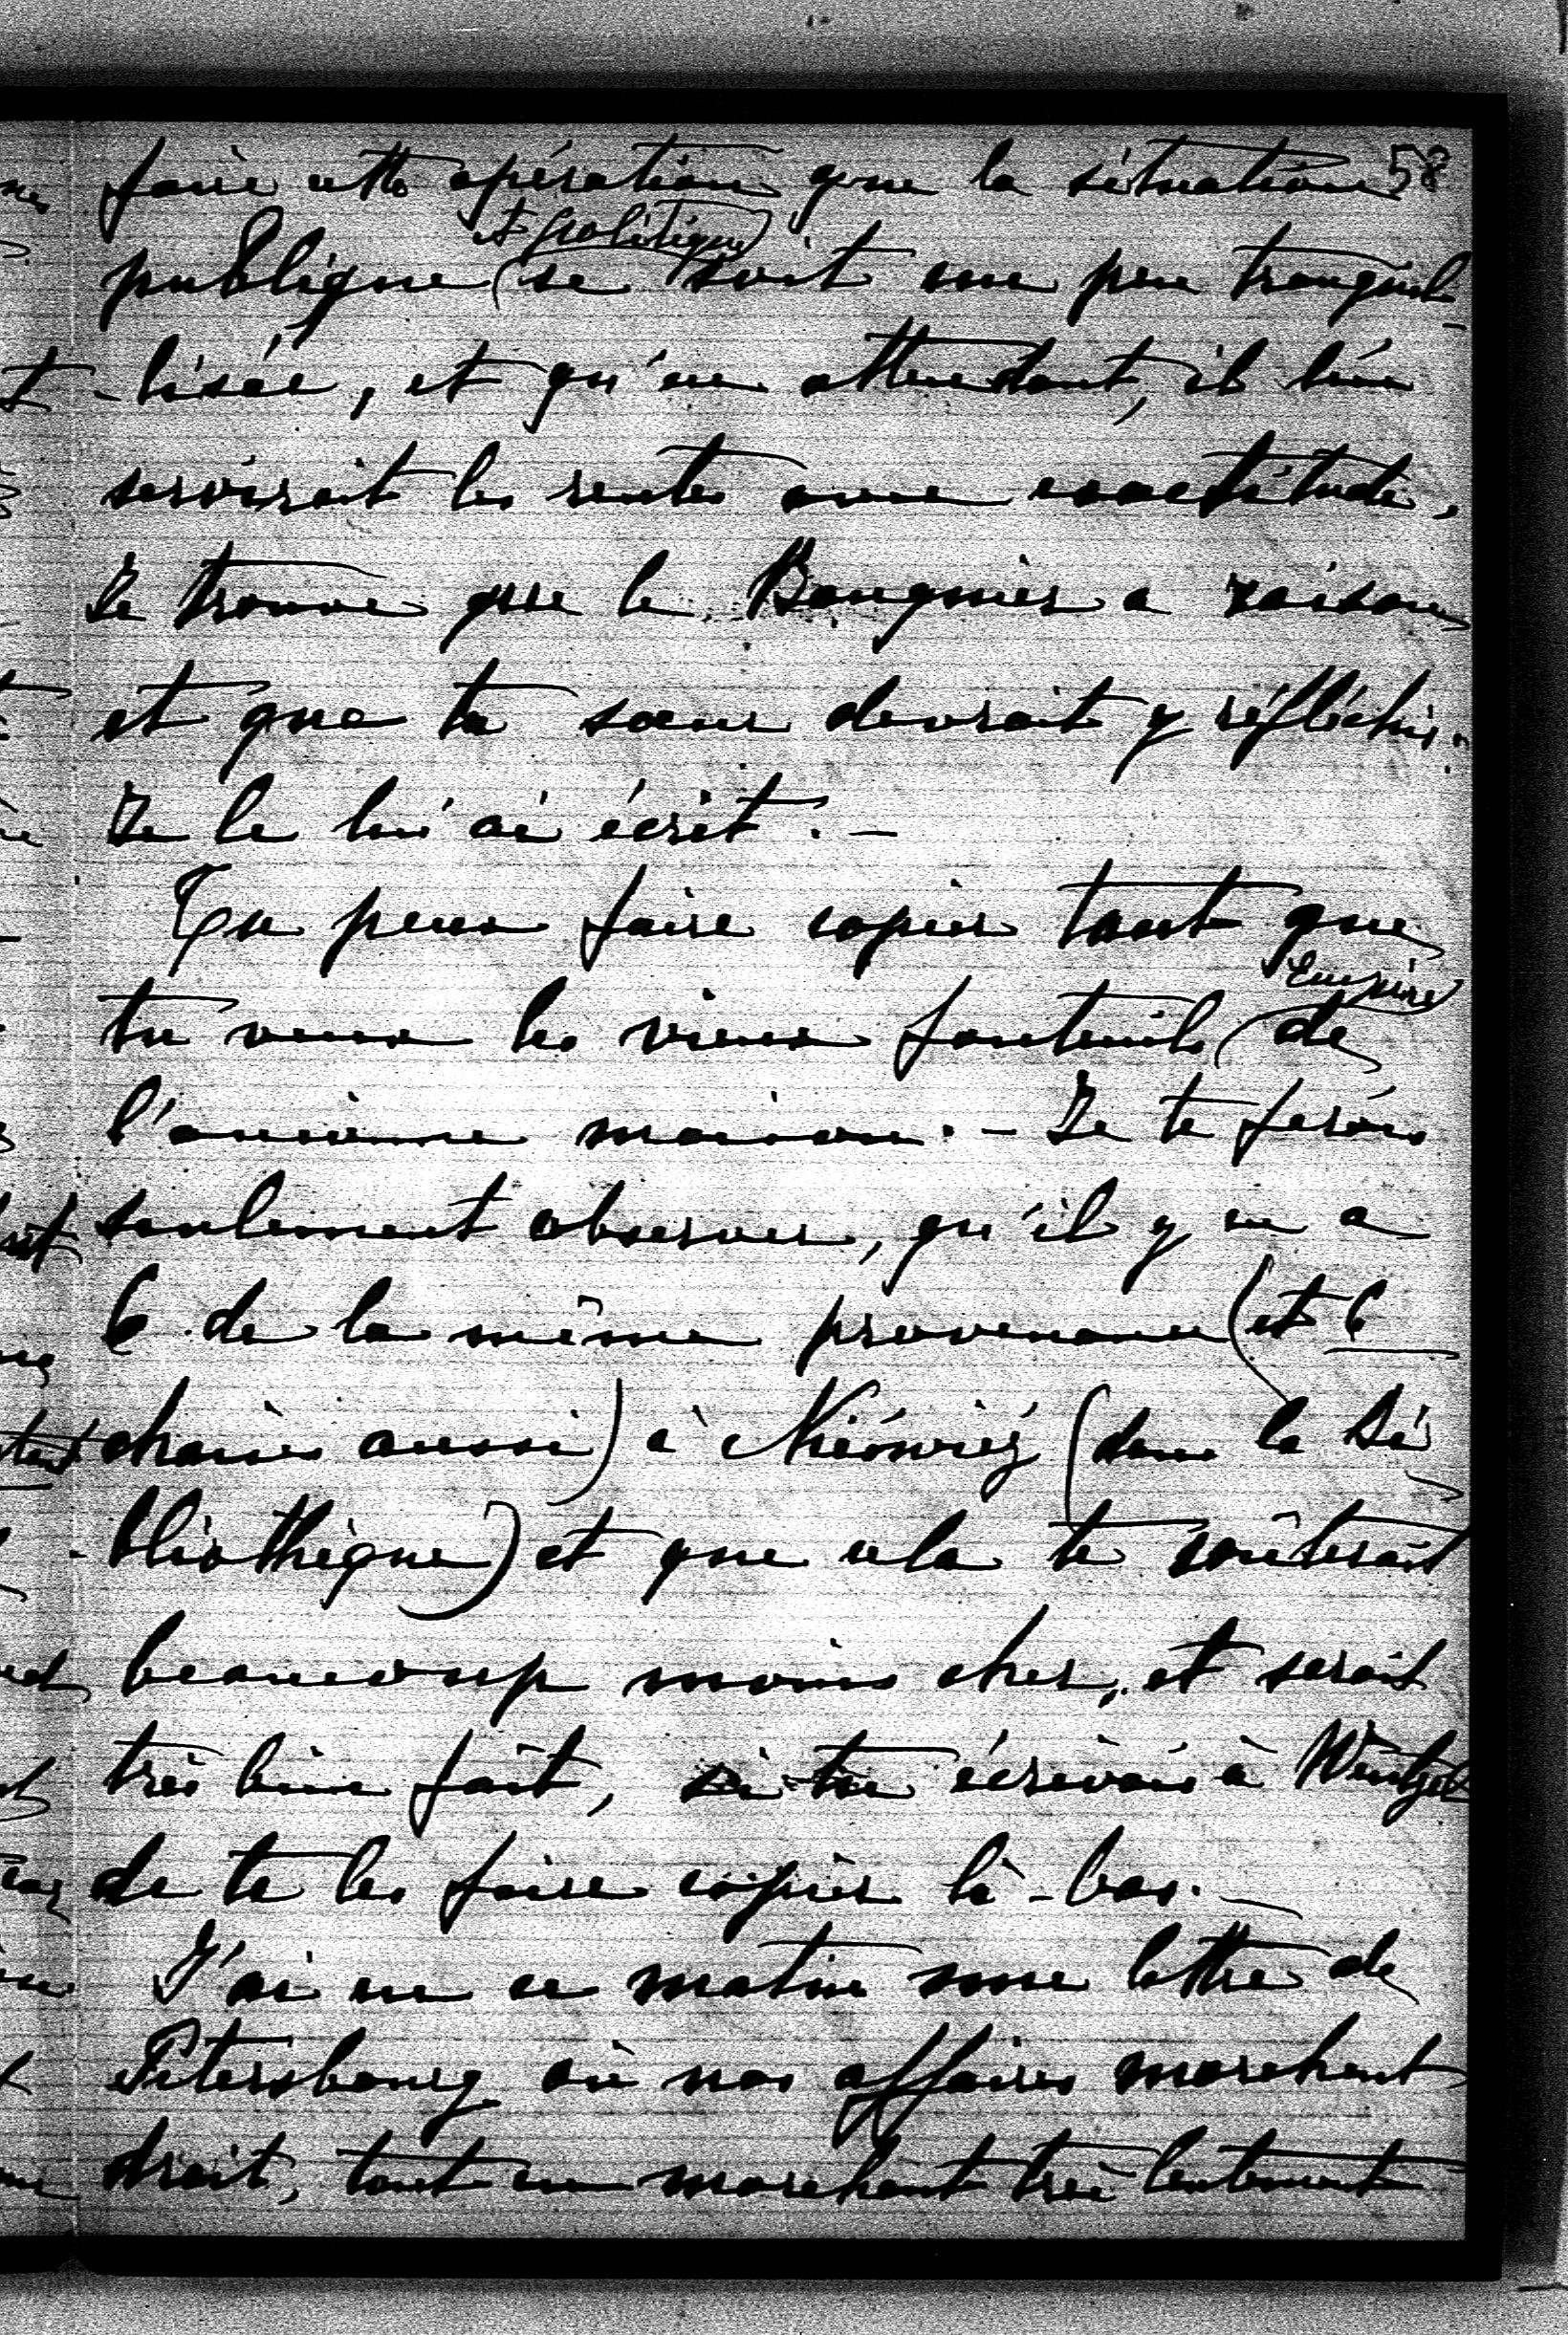 58
faire cette opération que la situation
et politique
publique se soit un peu tranquil-
-lisée, et qu'en attendant, il lui
servirait les rentes avec exactitude.
Je trouve que le Banquier a raison
et que ta sœur devrait y réfléchir.
Je le lui ai écrit. —
Tu peux faire copier tant que
Empire
tu veux les vieux fauteuils de
l'ancienne maison. — Je te ferais
seulement observer, qu'il y en a
6 de la même provenance (et 6
chaises aussi) à Nieśwież (dans la Bi
-bliothèque) et que cela te coûterait
beaucoup moins cher, et serait
très bien fait, si tu écrivais à Wentzel
de te les faire copier là-bas. —
J'ai eu ce matin une lettre de
Pétersbourg où nos affaires marchent
droit, tout en marchant très lentement